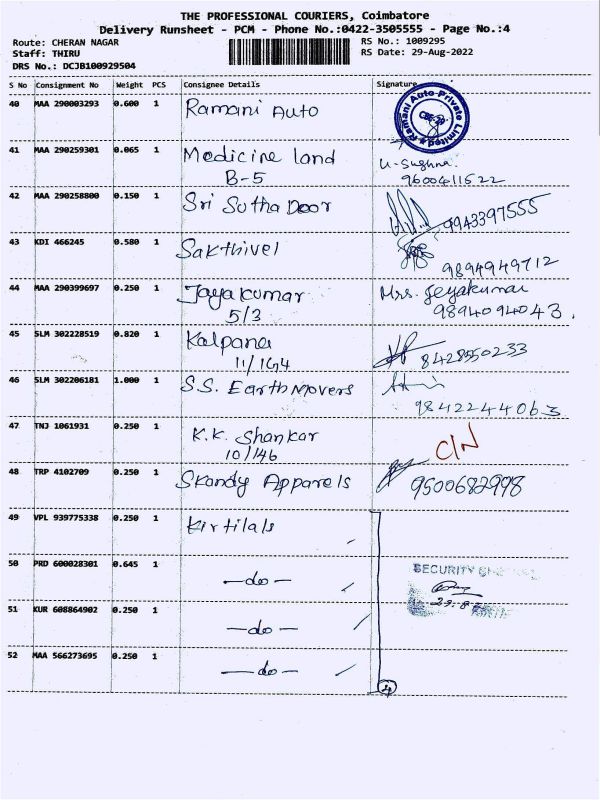 THE PROFESSIONAL COURIERS, Coimbatore
Delivery Runsheet - PCM - Phone No.:0422-3505555 - Page No.:4
Route: CHERAN NAGAR
RS No.: 1009295
Staff: THIRU
RS Date: 29-Aug-2022
DRS No.: DCJB100929504
S No Consignment No Weight PCS Consignee Details Signature
40 MAA 290003293 0.600 1 Ramani Auto
Ramani Auto Private Limited
CBE-29
41 MAA 290259301 0.065 1 Medicine land
B-5
9600411522
42 MAA 290258800 0.150 1 Sri Sutha Door 9943397555
43 KDI 466245 0.580 1 Sakthivel
9894949712
44 MAA 290399697 0.250 1 Jayakumar Mrs. Jeyakumar
5/3 9894094043.
45 SLM 302228519 0.820 1 Kalpana
8428550233
46 SLM 302206181 1.000 1 S.S. Earth Movers
9842244063
47 TNJ 1061931 0.250 1 K.K. Shankar C/N
10/146
48 TRP 4102709 0.250 1 Skandy Apparels 9500682998
49 VPL 939775338 0.250 1 Kirtilals
50 PRD 600028301 0.645 1 —do—
SECURITY
51 KUR 608864902 0.250 1 —do—
52 MAA 566273695 0.250 1 —do—
4